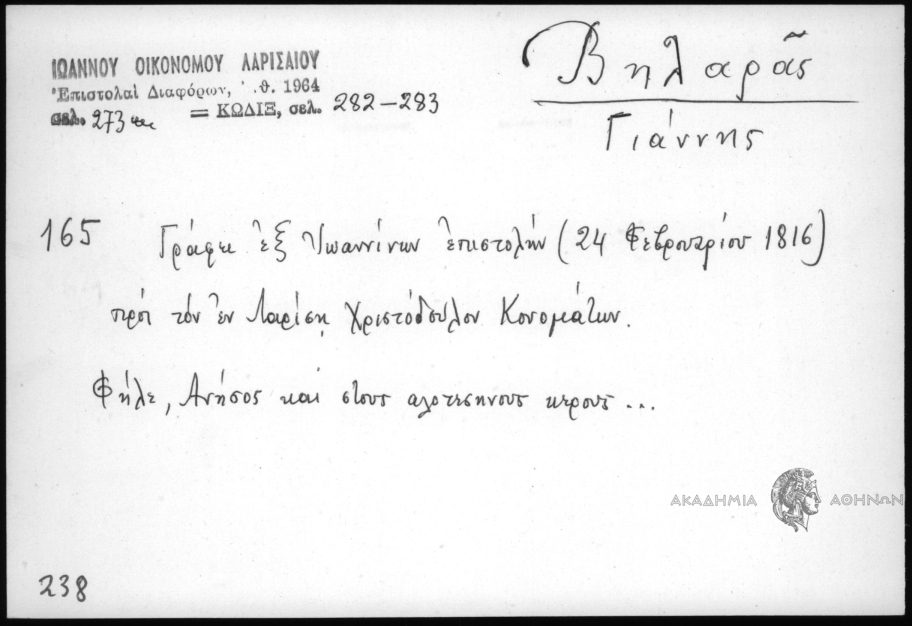 ΙΩΑΝΝΟΥ ΟΙΚΟΝΟΜΟΥ ΛΑΡΙΣΑΙΟΥ
Ἐπιστολαὶ Διαφόρων, .θ. 1964
σελ. 273 = ΚΩΔΙΞ, σελ. 282-283
Βηλαρᾶς
Γιάννης
165 Γράφει ἐξ Ἰωαννίνων ἐπιστολήν (24 Φεβρουαρίου 1816)
πρὸς τὸν ἐν Λαρίσῃ Χριστόδουλον Κονομάτων.
Φήλε, Ανήσος καὶ στους αλοτεσηνους κερους ...
ΑΚΑΔΗΜΙΑ ΑΘΗΝΩΝ
238